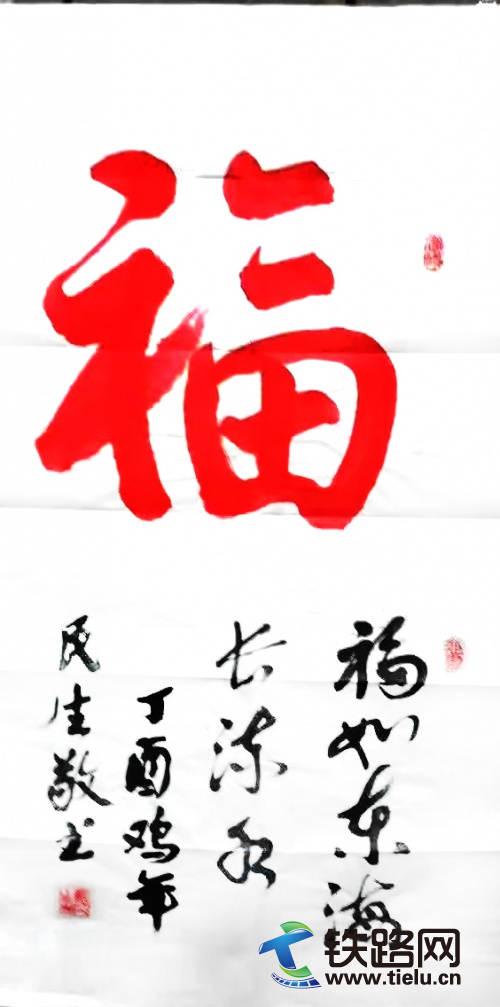 福
福如东海
长流水
丁酉鸡年
民生敬书
铁路网
www.tielu.cn